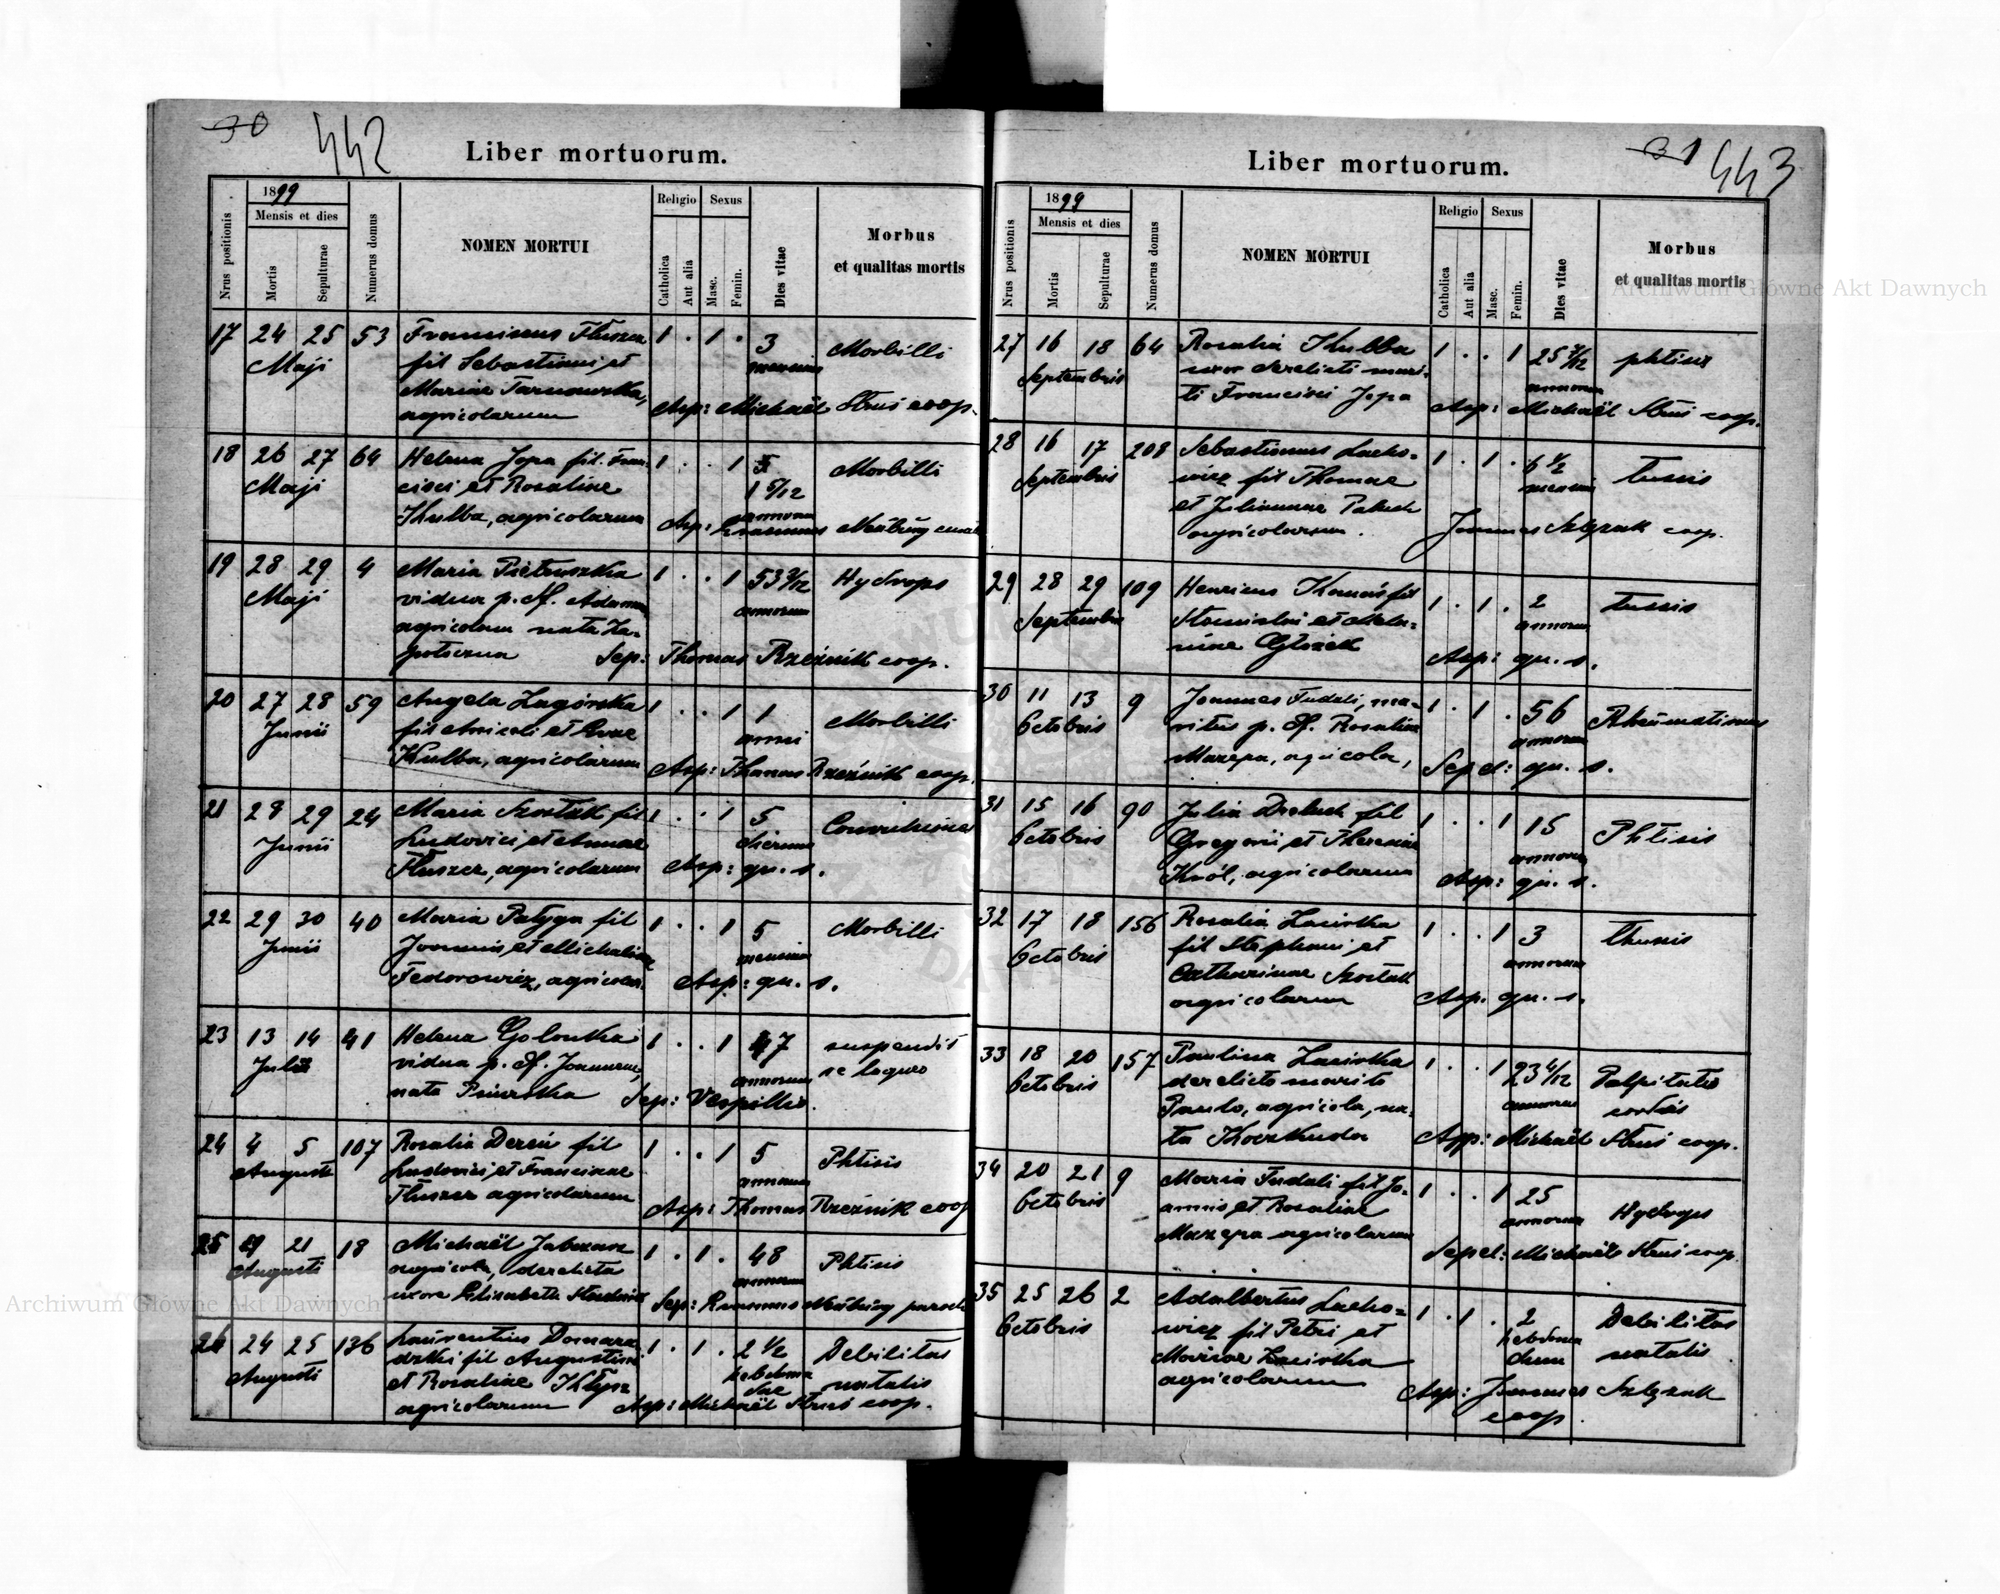 30
442
Liber mortuorum.
1899
Mensis et dies
Religio Sexus
Nrus positionis
Mortis
Sepulturae
Numerus domus
NOMEN MORTUI
Catholica
Aut alia
Masc.
Femin.
Dies vitae
Morbus
et qualitas mortis
17 24 25 53 Franciscus Fłuszer 1 . 1 . 3 Morbilli
Maji fil Sebastiani et mensium
Mariae Tarnawska,
agricolarum Asp: Michaël Struś coop.
18 26 27 64 Helena Jopa fil. Fran- 1 . . 1 Morbilli
Maji cisci et Rosaliae 1 5/12
Kulba, agricolarum annorum
Asp: Erasmus Neuburg
19 28 29 4 Maria Pietruszka 1 . . 1 53 9/12 Hydrops
Maji vidua p. Adamum annorum
agricolam nata
Sep: Thomas Rzeźnik coop.
20 27 28 59 Angela Zagórska 1 . . 1 1 Morbilli
Junii fil Aniceti et Evae anni
Kulba, agricolarum Asp: Thomas Rzeźnik coop.
21 28 29 24 Maria Szostak fil 1 . . 1 5 Convulsiones
Junii Ludovici et Annae dierum
Fłuszer, agricolarum Asp: qu. s.
22 29 30 40 Maria Pałyga fil 1 . . 1 5 Morbilli
Junii Joannis et Michalinae mensium
Fedorowicz, agricolar. Asp: qu. s.
23 13 14 41 Helena Golonka 1 . . 1 47 suspendit
Julii vidua p. Joannem, annorum se laqueo
nata Sep: Vespillio.
24 4 5 107 Rosalia Dereń fil 1 . . 1 5 Phtisis
Augusti Ludovici et Franciscae annorum
Fłuszer agricolarum Asp: Thomas Rzeźnik coop
25 19 21 18 Michaël 1 . 1 . 48 Phtisis
Augusti agricola, derelicta annorum
uxore Elisabetha Sep: Erasmus Neuburg
26 24 25 136 Laurentius Domara- 1 . 1 . 2 1/2 Debilitas
Augusti dzki fil Augustini hebdoma natalis
et Rosaliae Kłysz dae
agricolarum Asp: Michaël Struś coop.
31 443
Liber mortuorum.
1899
Mensis et dies
Religio Sexus
Nrus positionis
Mortis
Sepulturae
Numerus domus
NOMEN MORTUI
Catholica
Aut alia
Masc.
Femin.
Dies vitae
Morbus
et qualitas mortis
27 16 18 64 Rosalia Kulba 1 . . 1 25 7/12 phtisis
Septembris uxor derelicti mari- annorum
ti Francisci Jopa Asp: Michaël Struś coop.
28 16 17 208 Sebastianus Lacho- 1 . 1 . 6 1/2 tussis
Septembris wicz fil Thomae mensium
et Juliannae
agricolarum. Joannes Szlęzak coop.
29 28 29 109 Henricus fil 1 . 1 . 2 tussis
Septembris Stanislai et Mela- annorum
niae Asp: qu. s.
30 11 13 9 Joannes Fudali, ma- 1 . 1 . 56 Rheumatismus
Octobris ritus p. Rosaliae annorum
Mazepa, agricola, Sepel: qu. s.
31 15 16 90 Julia fil 1 . . 1 15 Phtisis
Octobris Gregorii et Theresiae annorum
Król, agricolarum Asp: qu. s.
32 17 18 156 Rosalia Lasistka 1 . . 1 3 thussis
Octobris fil Stephani et annorum
Catharinae Szostak
agricolarum Asp. qu. s.
33 18 20 157 Paulina Lasistka 1 . . 1 23 4/12 Palpitatio
Octobris derelicto marito annorum cordis
Paulo, agricola, na-
ta Asp: Michaël Struś coop.
34 20 21 9 Maria Fudali fil Jo- 1 . . 1 25 Hydrops
Octobris annis et Rosaliae annorum
Mazepa agricolarum Sepel: Michaël Struś coop.
35 25 26 2 Adalbertus Lacho- 1 . 1 . 2 Debilitas
Octobris wicz fil Petri et hebdoma natalis
Mariae Lasistka darum
agricolarum
Asp: Joannes Szlęzak
coop.
Archiwum Główne Akt Dawnych
Archiwum Główne Akt Dawnych